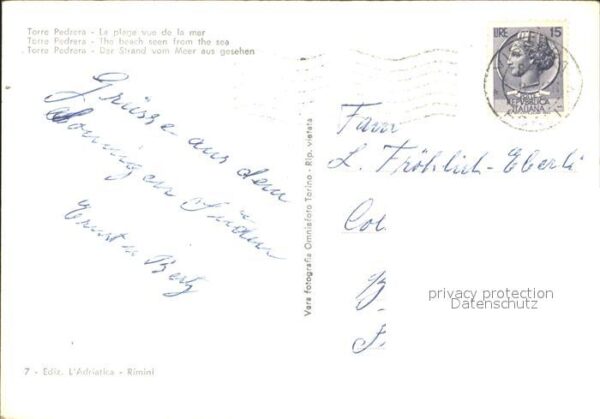 Torre Pedrera - La plage vue de la mer
Torre Pedrera - The beach seen from the sea
Torre Pedrera - Der Strand vom Meer aus gesehen
LIRE 15
REPVBBLICA
ITALIANA
Grüsse aus dem
sonnigen Süden
Ernst u. Betz
Vera fotografia Omniafoto Torino - Rip. vietata
Fam
L. Fröhlich-Eberli
Col
B.
privacy protection
Datenschutz
7 - Ediz. L'Adriatica - Rimini